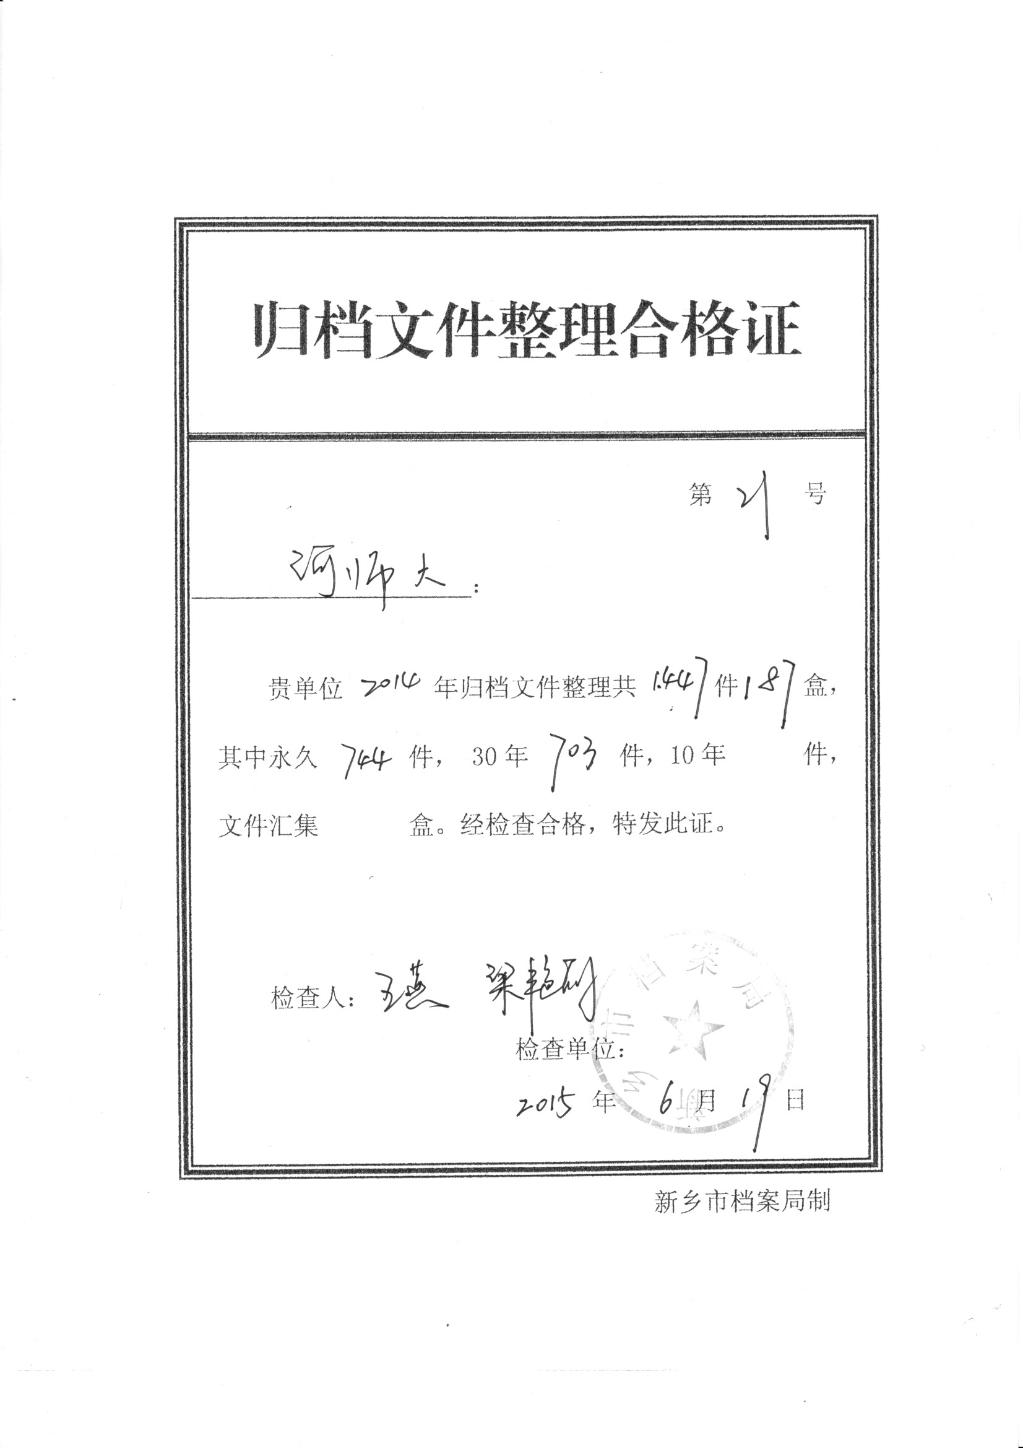 归档文件整理合格证
第 21 号
河师大：
贵单位 2014 年归档文件整理共 1447 件 187 盒，
其中永久 744 件， 30年 703 件，10年 件，
文件汇集 盒。经检查合格，特发此证。
检查人：王燕 梁艳丽
检查单位：
新乡市档案局
2015 年 6 月 19 日
新乡市档案局制